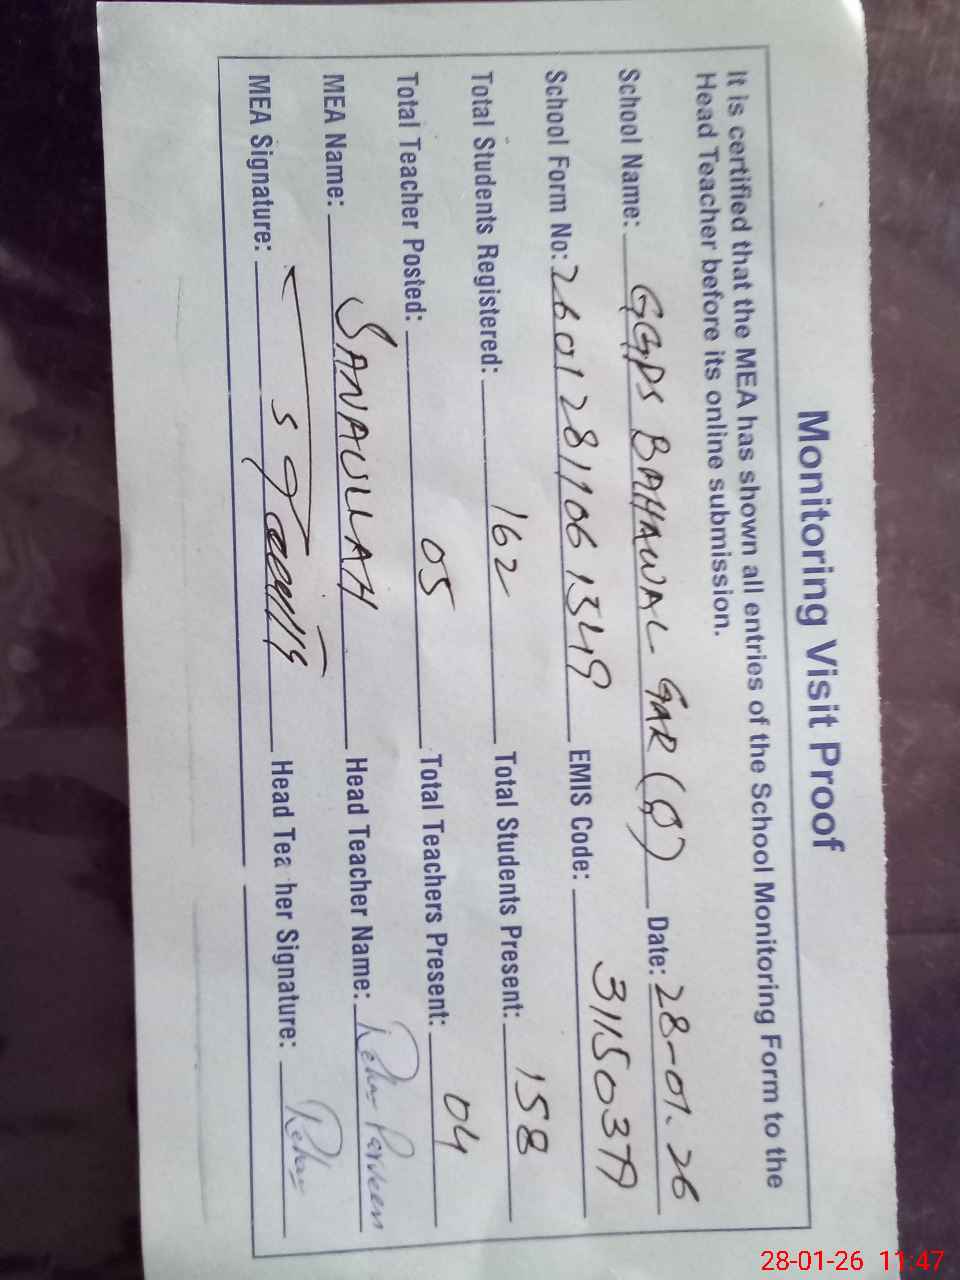 Monitoring Visit Proof
It is certified that the MEA has shown all entries of the School Monitoring Form to the
Head Teacher before its online submission.
School Name: GGPS BAHAWAL GAR (Q) Date: 28-01-26
School Form No: 2601281106 1349 EMIS Code: 31150379
Total Students Registered: 162 Total Students Present: 158
Total Teacher Posted: 05 Total Teachers Present: 04
MEA Name: SANAULLAH Head Teacher Name: Parveen
MEA Signature: Head Tea her Signature:
28-01-26 11:47